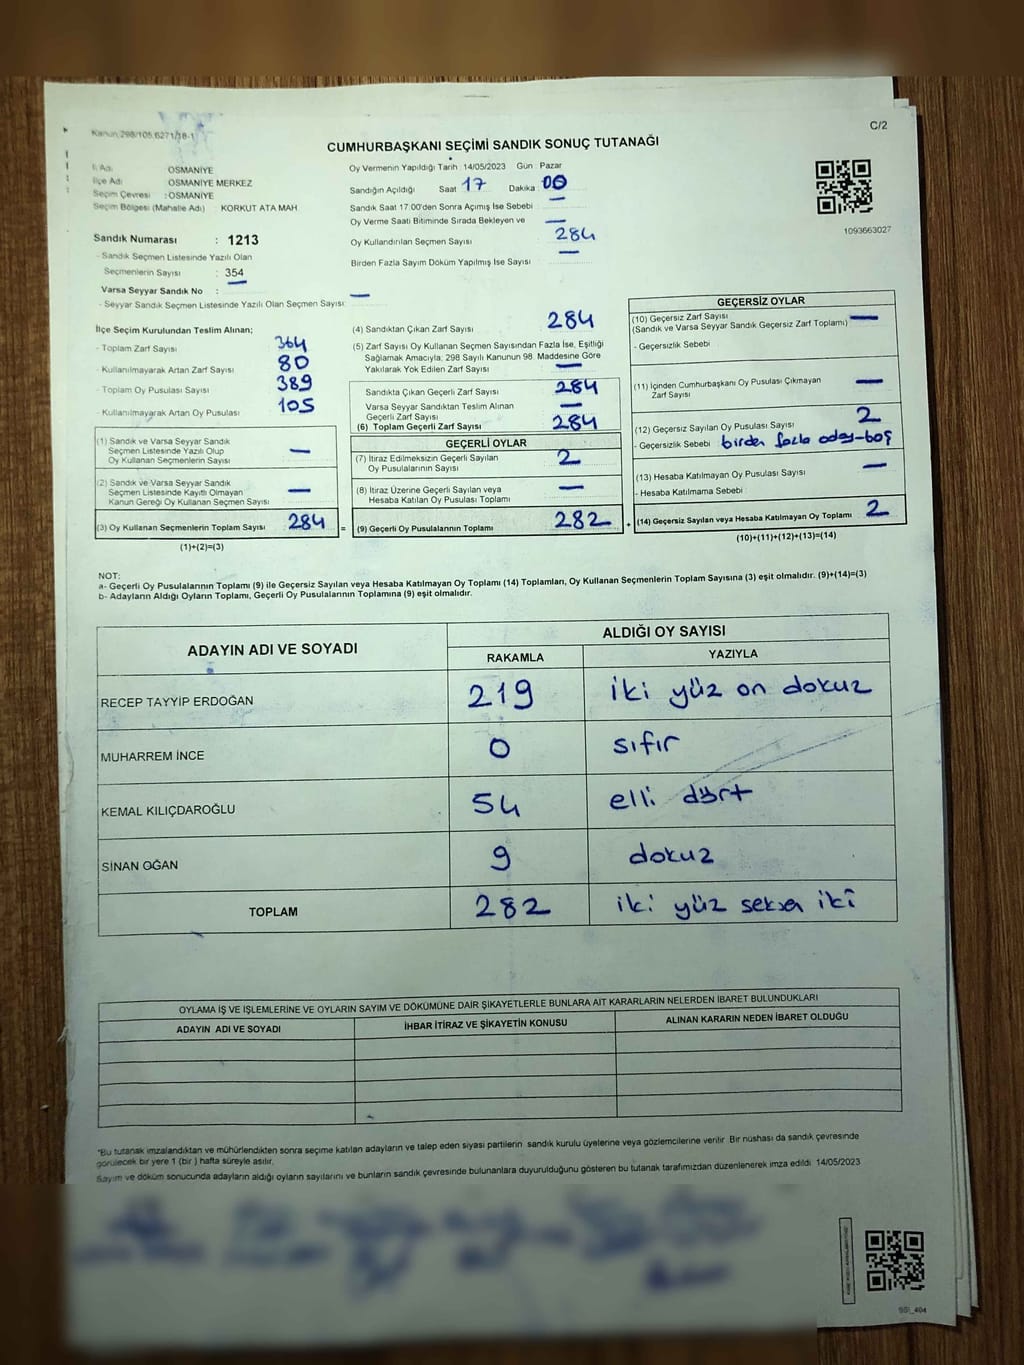 Kanun:298/105,6271/18-1
C/2
CUMHURBAŞKANI SEÇİMİ SANDIK SONUÇ TUTANAĞI
İl Adı : OSMANİYE
İlçe Adı : OSMANİYE MERKEZ
Seçim Çevresi : OSMANİYE
Seçim Bölgesi (Mahalle Adı) : KORKUT ATA MAH.
Sandık Numarası : 1213
- Sandık Seçmen Listesinde Yazılı Olan
Seçmenlerin Sayısı : 354
Varsa Seyyar Sandık No : —
- Seyyar Sandık Seçmen Listesinde Yazılı Olan Seçmen Sayısı: —
Oy Vermenin Yapıldığı Tarih 14/05/2023 Gün : Pazar
Sandığın Açıldığı Saat 17 Dakika 00
Sandık Saat 17:00'den Sonra Açımış İse Sebebi —
Oy Verme Saati Bitiminde Sırada Bekleyen ve —
Oy Kullandırılan Seçmen Sayısı 284
Birden Fazla Sayım Döküm Yapılmış İse Sayısı —
1093663027
İlçe Seçim Kurulundan Teslim Alınan;
- Toplam Zarf Sayısı 364
- Kullanılmayarak Artan Zarf Sayısı 80
- Toplam Oy Pusulası Sayısı 389
- Kullanılmayarak Artan Oy Pusulası 105
(1) Sandık ve Varsa Seyyar Sandık
Seçmen Listesinde Yazılı Olup
Oy Kullanan Seçmenlerin Sayısı —
(2) Sandık ve Varsa Seyyar Sandık
Seçmen Listesinde Kayıtlı Olmayan
Kanun Gereği Oy Kullanan Seçmen Sayısı —
(3) Oy Kullanan Seçmenlerin Toplam Sayısı 284 =
(1)+(2)=(3)
(4) Sandıktan Çıkan Zarf Sayısı 284
(5) Zarf Sayısı Oy Kullanan Seçmen Sayısından Fazla İse, Eşitliği
Sağlamak Amacıyla, 298 Sayılı Kanunun 98. Maddesine Göre
Yakılarak Yok Edilen Zarf Sayısı —
Sandıkta Çıkan Geçerli Zarf Sayısı 284
Varsa Seyyar Sandıktan Teslim Alınan
Geçerli Zarf Sayısı —
(6) Toplam Geçerli Zarf Sayısı 284
GEÇERLİ OYLAR
(7) İtiraz Edilmeksizin Geçerli Sayılan
Oy Pusulalarının Sayısı 2
(8) İtiraz Üzerine Geçerli Sayılan veya
Hesaba Katılan Oy Pusulası Toplamı —
(9) Geçerli Oy Pusulalarının Toplamı 282 +
GEÇERSİZ OYLAR
(10) Geçersiz Zarf Sayısı
(Sandık ve Varsa Seyyar Sandık Geçersiz Zarf Toplamı) —
- Geçersizlik Sebebi
(11) İçinden Cumhurbaşkanı Oy Pusulası Çıkmayan
Zarf Sayısı —
(12) Geçersiz Sayılan Oy Pusulası Sayısı 2
- Geçersizlik Sebebi birden fazla aday-boş
(13) Hesaba Katılmayan Oy Pusulası Sayısı —
- Hesaba Katılmama Sebebi
(14) Geçersiz Sayılan veya Hesaba Katılmayan Oy Toplamı 2
(10)+(11)+(12)+(13)=(14)
NOT:
a- Geçerli Oy Pusulalarının Toplamı (9) ile Geçersiz Sayılan veya Hesaba Katılmayan Oy Toplamı (14) Toplamları, Oy Kullanan Seçmenlerin Toplam Sayısına (3) eşit olmalıdır. (9)+(14)=(3)
b- Adayların Aldığı Oyların Toplamı, Geçerli Oy Pusulalarının Toplamına (9) eşit olmalıdır.
ADAYIN ADI VE SOYADI ALDIĞI OY SAYISI
RAKAMLA YAZIYLA
RECEP TAYYİP ERDOĞAN 219 iki yüz on dokuz
MUHARREM İNCE 0 sıfır
KEMAL KILIÇDAROĞLU 54 elli dört
SİNAN OĞAN 9 dokuz
TOPLAM 282 iki yüz seksen iki
OYLAMA İŞ VE İŞLEMLERİNE VE OYLARIN SAYIM VE DÖKÜMÜNE DAİR ŞİKAYETLERLE BUNLARA AİT KARARLARIN NELERDEN İBARET BULUNDUKLARI
ADAYIN ADI VE SOYADI İHBAR İTİRAZ VE ŞİKAYETİN KONUSU ALINAN KARARIN NEDEN İBARET OLDUĞU
*Bu tutanak imzalandıktan ve mühürlendikten sonra seçime katılan adayların ve talep eden siyasi partilerin sandık kurulu üyelerine veya gözlemcilerine verilir Bir nüshası da sandık çevresinde
görülecek bir yere 1 (bir ) hafta süreyle asılır.
Sayım ve döküm sonucunda adayların aldığı oyların sayılarını ve bunların sandık çevresinde bulunanlara duyurulduğunu gösteren bu tutanak tarafımızdan düzenlenerek imza edildi 14/05/2023